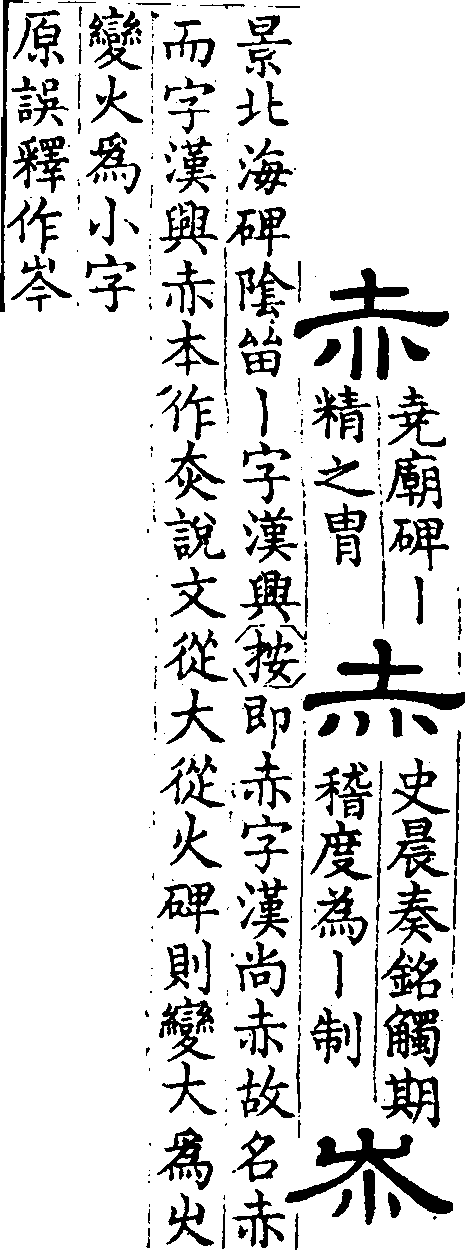 赤
堯廟碑丨
精之胄
赤
史晨奏銘觸期
稽度為丨制
灻
景北海碑陰甾丨字漢興按即赤字漢尚赤故名赤
而字漢興赤本作灻說文從大從火碑則變大爲火
變火爲小字
原誤釋作岑